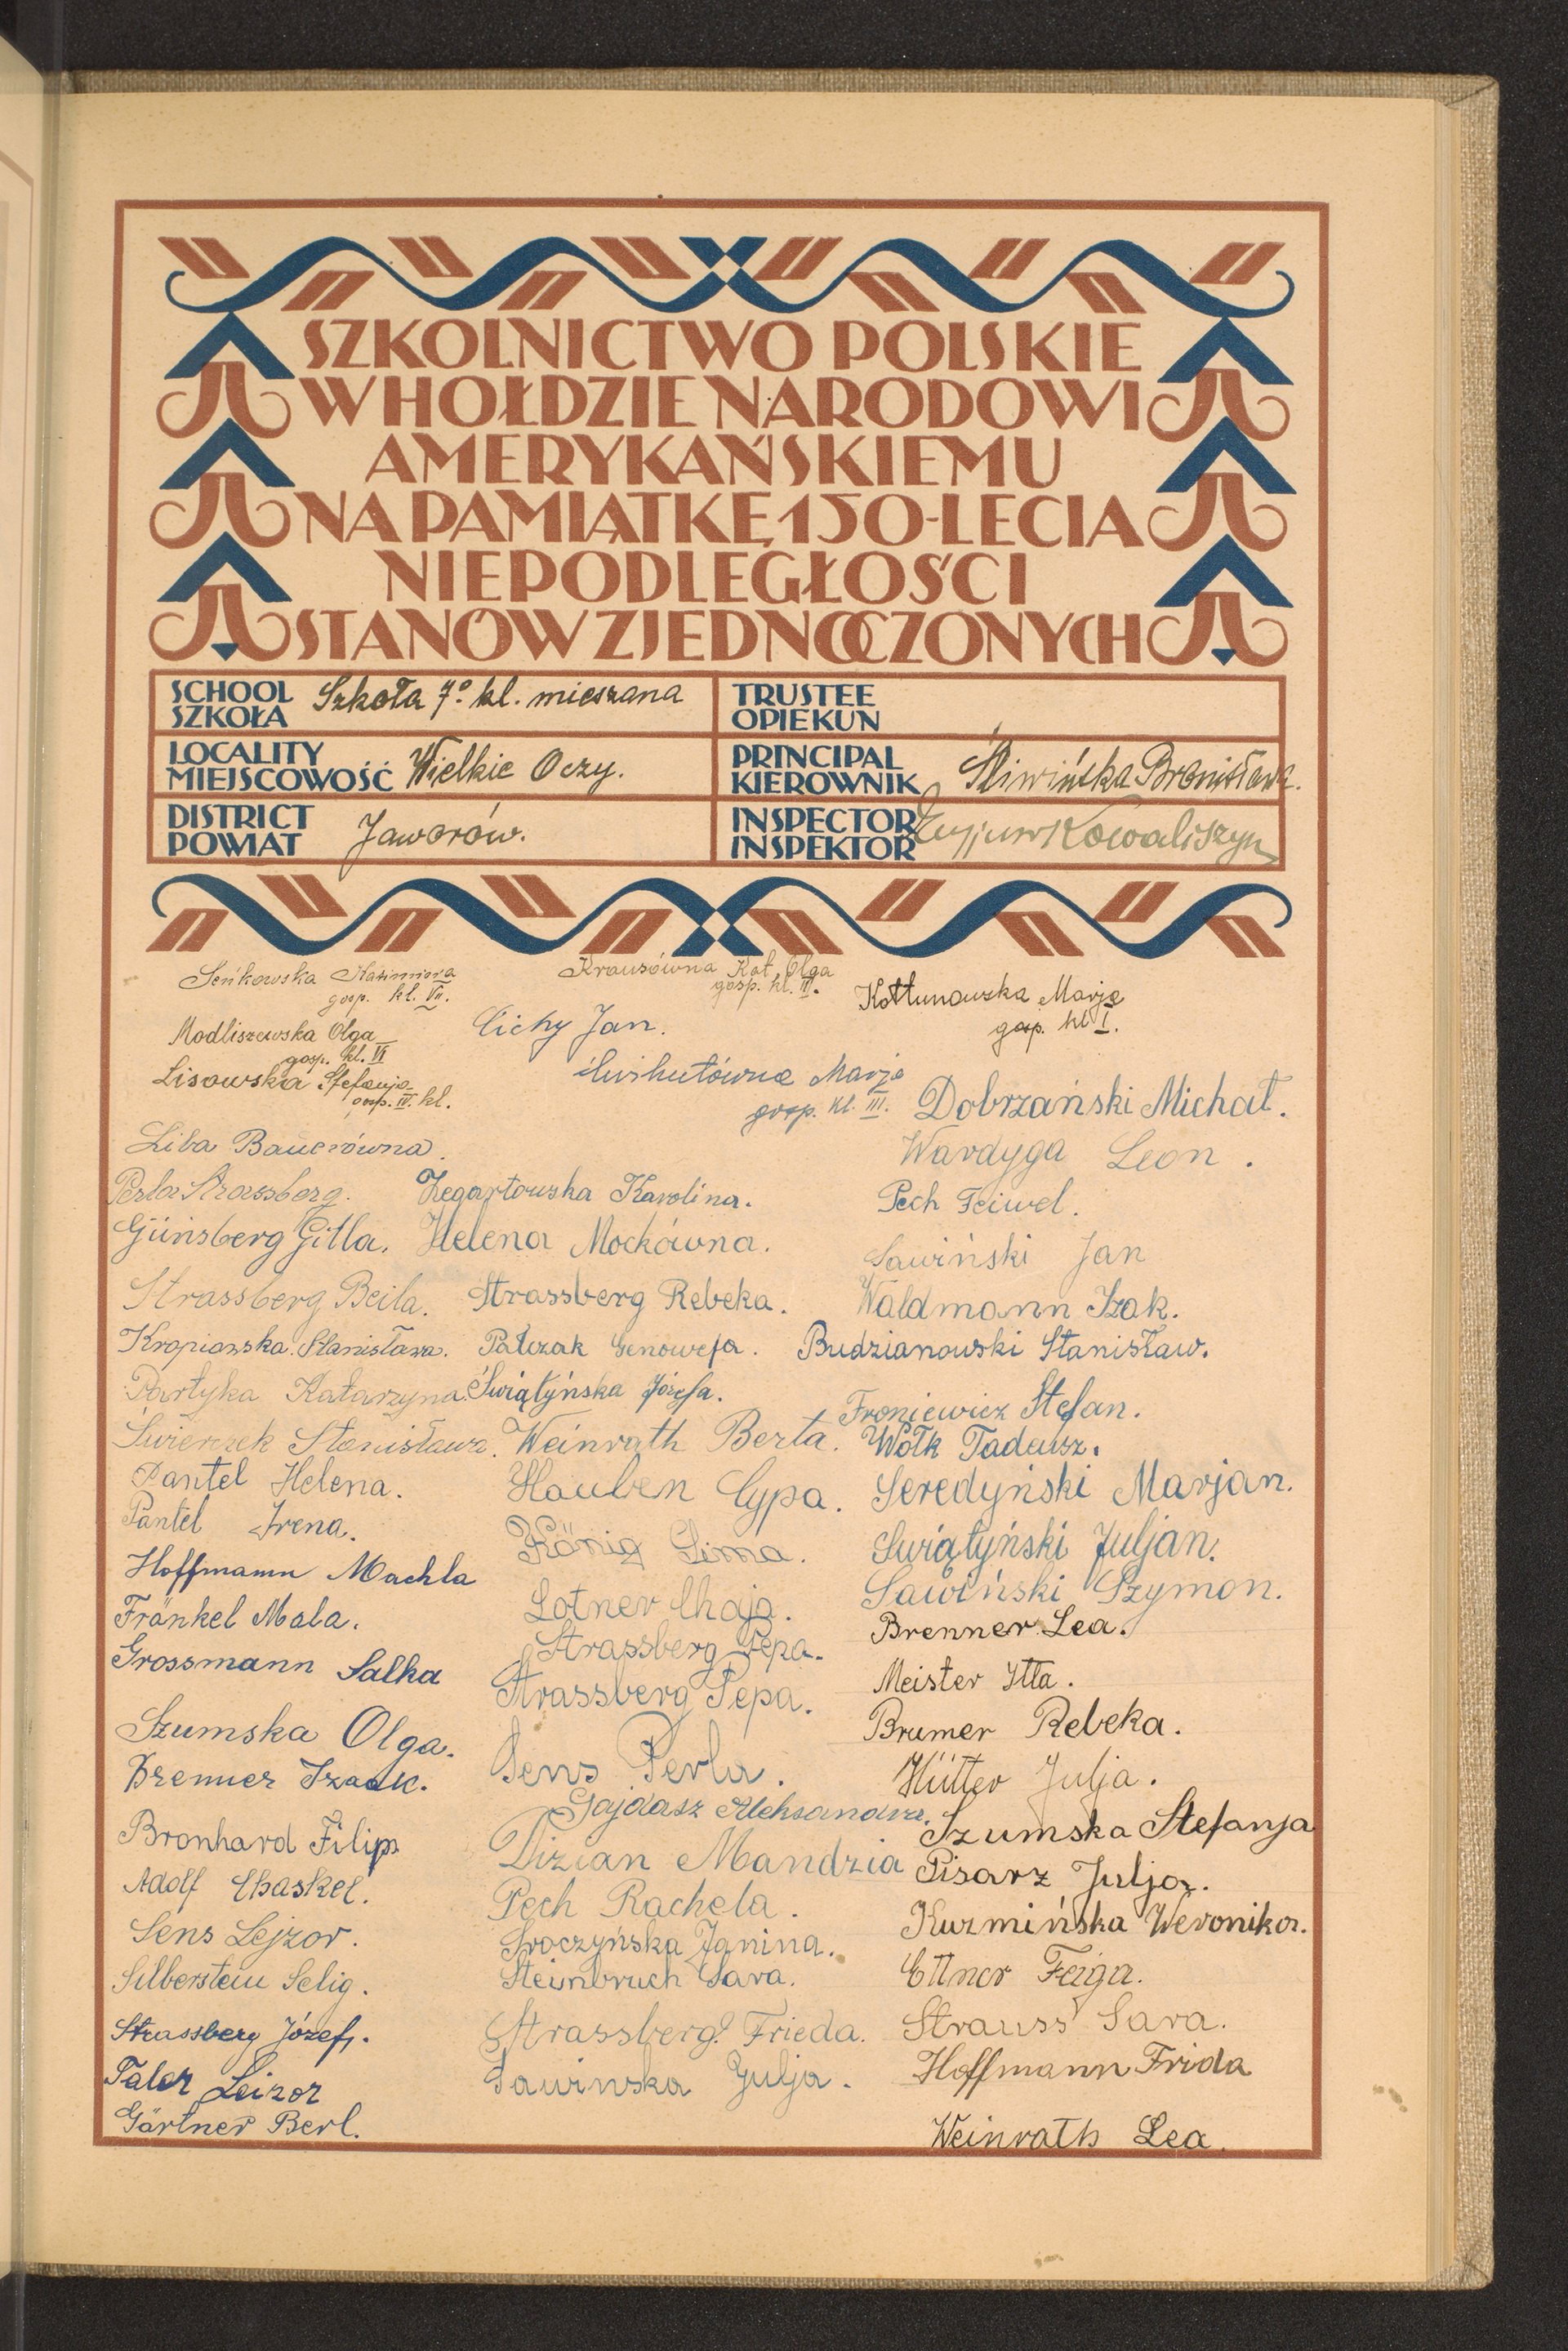 SZKOLNICTWO POLSKIE
W HOŁDZIE NARODOWI
AMERYKAŃSKIEMU
NA PAMIĄTKĘ 150-LECIA
NIEPODLEGŁOŚCI
STANÓW ZJEDNOCZONYCH
SCHOOL
SZKOŁA
Szkoła 7º kl. mieszana
LOCALITY
MIEJSCOWOŚĆ
Wielkie Oczy.
DISTRICT
POWIAT
Jaworów.
TRUSTEE
OPIEKUN
PRINCIPAL
KIEROWNIK
Śliwińska Bronisława.
INSPECTOR
INSPEKTOR
Kowaliszyn
Seńkowska Kazimiera
gosp. kl. VII.
Modliszewska Olga
gosp. kl. VI
Lisowska Stefanja
gosp. IV. kl.
Krausówna Kat. Olga
gosp. kl. II.
Cichy Jan.
Marja
gosp. kl. III.
Kołtunowska Marja
gosp. kl I.
Liba Bauerówna.
Perla Strassberg.
Günsberg Gitla.
Strassberg Beila.
Kropiowska Stanisława.
Partyka Katarzyna.
Świerczek Stanisława.
Pantel Helena.
Pantel Irena.
Hoffmann Machla
Fränkel Mala.
Grossmann Salka
Szumska Olga.
Brenner Izaak.
Bronhard Filip
Adolf Chaskel.
Sens Lejzor.
Silberstein Selig.
Strassberg Józef.
Taler Leizor
Gärtner Berl.
Zegartowska Karolina.
Helena Mockówna.
Strassberg Rebeka.
Pałczak Genowefa.
Świątyńska Józefa.
Weinrath Berta.
Hauben Cypa.
König Sima.
Lotner Chaja.
Strassberg Pepa.
Strassberg Pepa.
Sens Perla.
Gajdasz Aleksandra.
Dizian Mandzia
Pech Rachela.
Sroczyńska Janina.
Steinbruch Sara.
Strassberg Frieda.
Sawinska Julja.
Dobrzański Michał.
Wardyga Leon.
Pech Feiwel.
Sawiński Jan
Waldmann Izak.
Budzianowski Stanisław.
Froniewicz Stefan.
Wołk Tadeusz.
Seredyński Marjan.
Swiątyński Juljan.
Sawiński Szymon.
Brenner Lea.
Meister Itta.
Brumer Rebeka.
Hütter Julja.
Szumska Stefanja
Pisarz Julja.
Kuzmińska Weronika.
Ettner Feiga.
Strauss Sara.
Hoffmann Frida
Weinrath Lea.